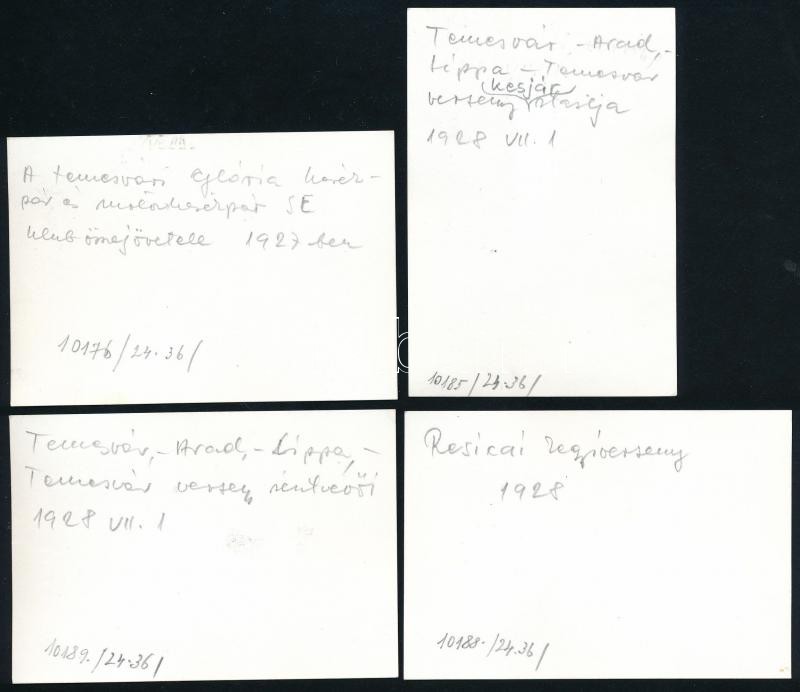 Temesvár,-Arad,-
Lippa - Temesvár
kerpár
verseny
1928 VII. 1
10185/24.36/
A temesvári Glória kerék-
pár és motorkerékpár SE
Klub összejövetele 1927-ben
10176/24.36/
Temesvár,-Arad,-Lippa,-
Temesvár verseny résztvevői
1928 VII. 1
10189./24.36/
Resicai hegyiverseny
1928
10188./24.36/